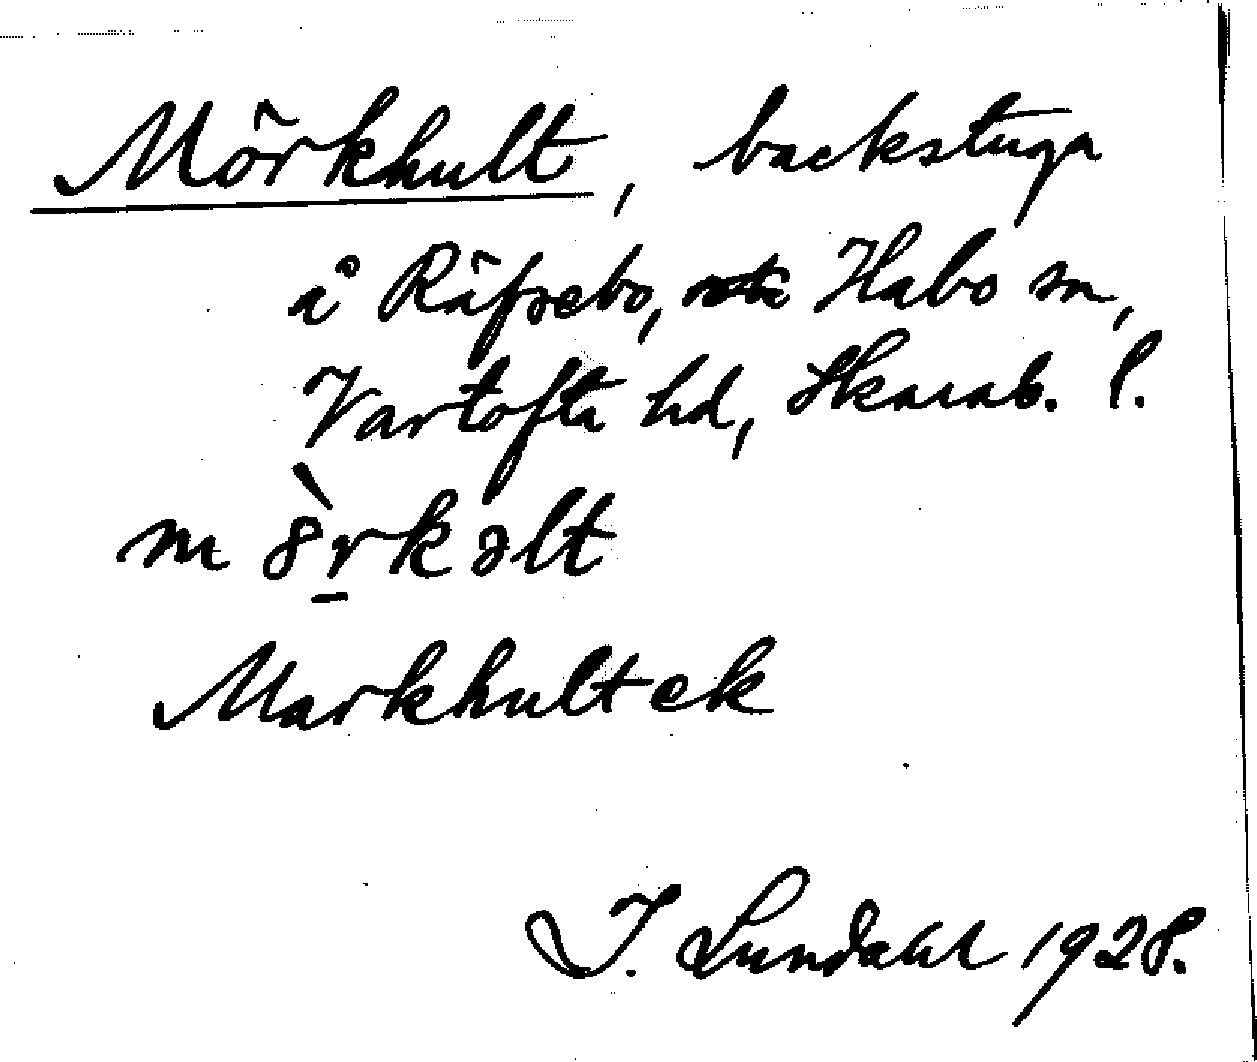 Mörkhult, backstuga
å Räfsebo, Habo sn,
Vartofta hd, Skarab. l.
m ȣ̀r̠kəlt
Markhult ek
I. Lundahl 1928.